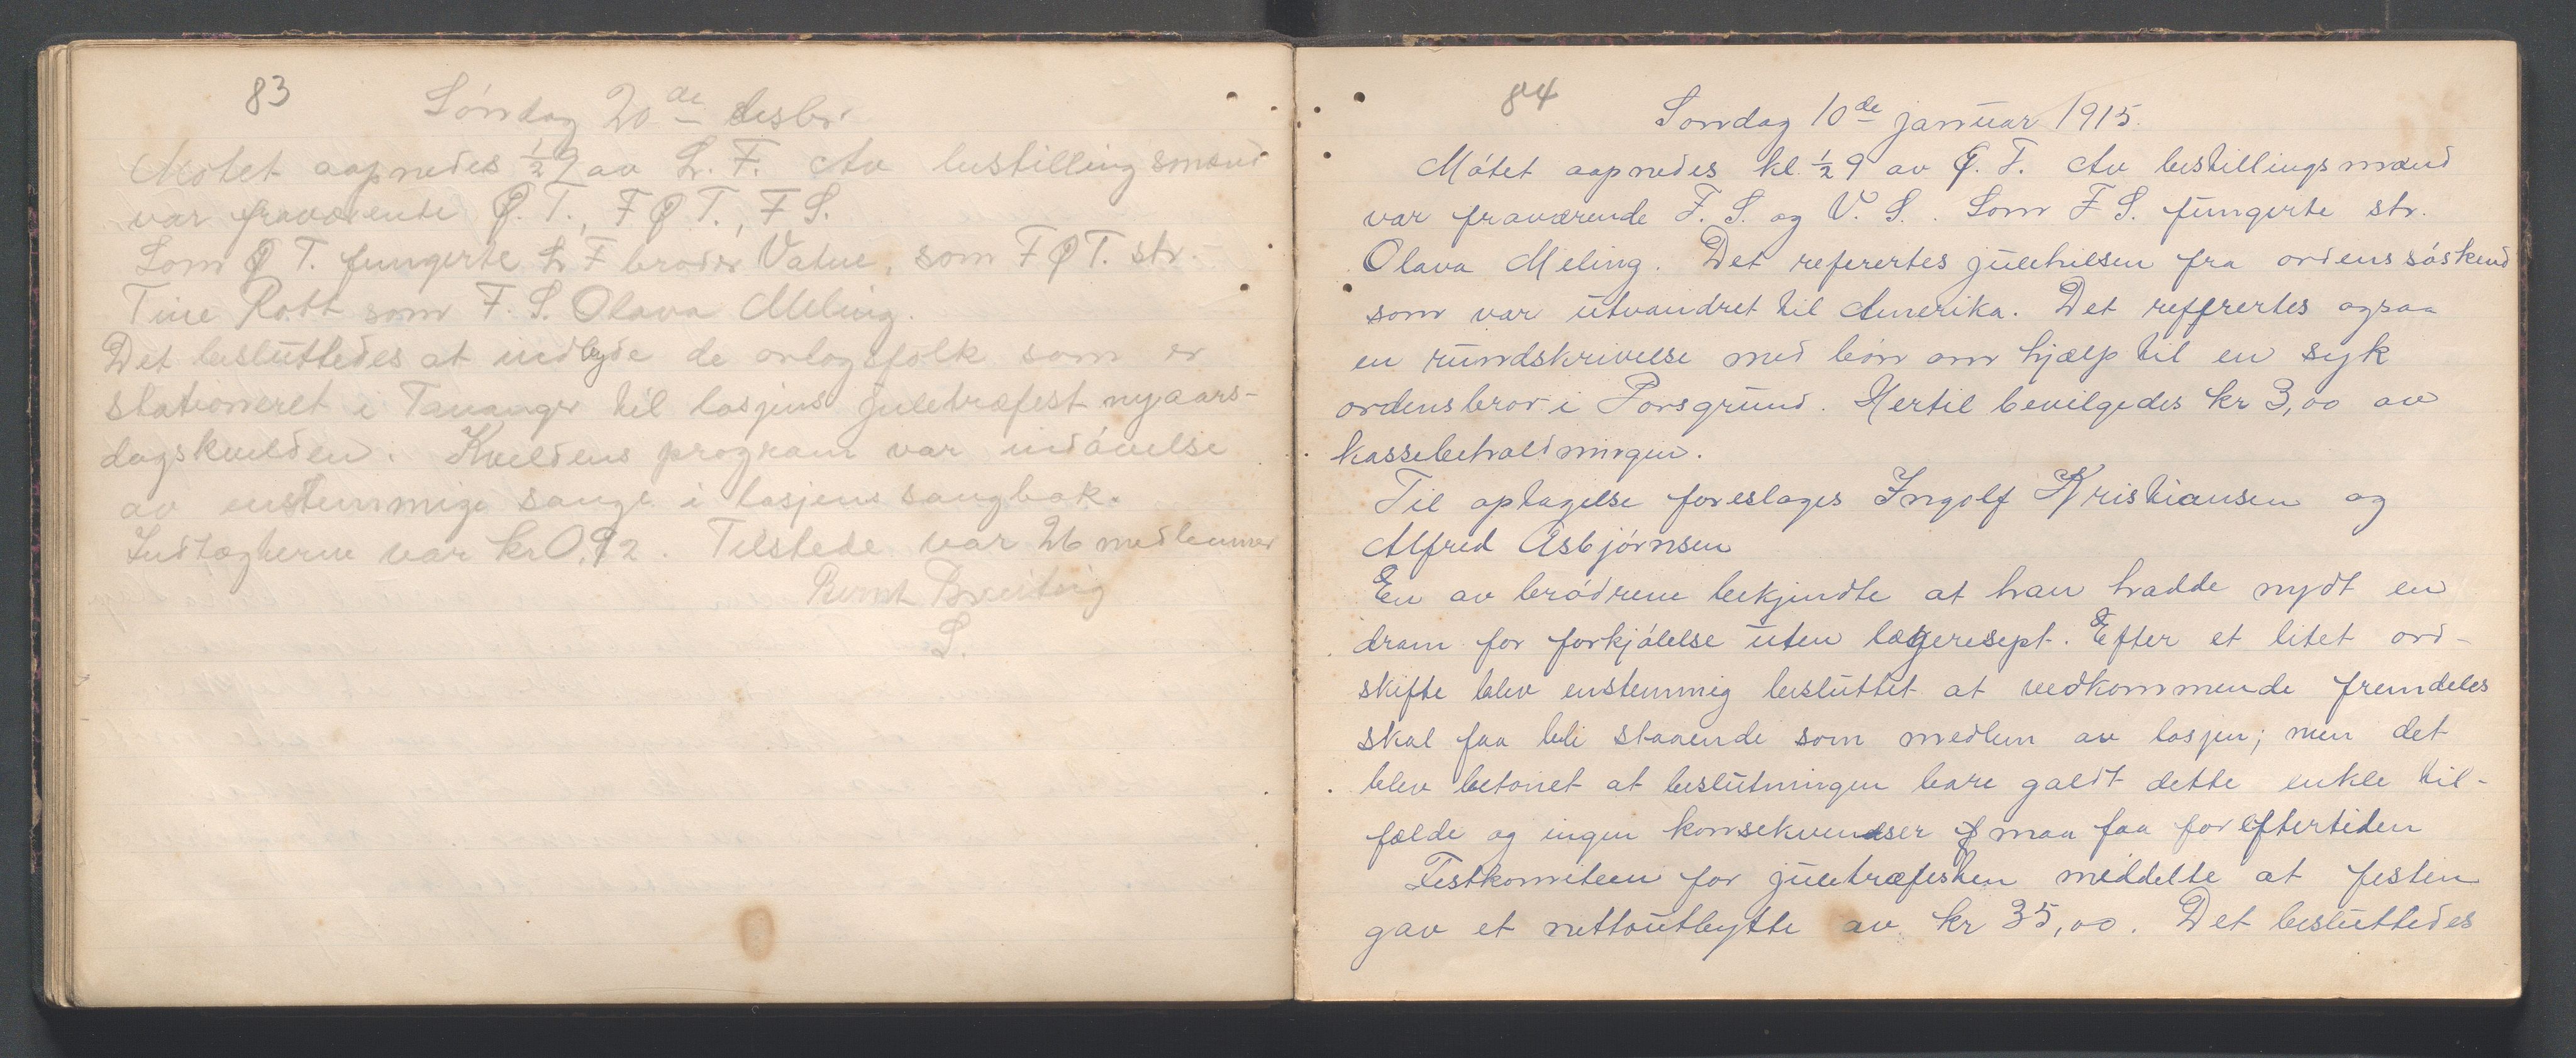 83
Søndag 20de desbr.
Møtet aapnedes ½9 av L. F. Av bestillingsmænd
var fraværende Ø. T., F Ø T., F S.
Som Ø T. fungerte L F broder Vatne, som F Ø T. str.
Tine Rott som F. S. Olava Meling.
Det besluttedes at indbyde de orlogsfolk som er
stationeret i Tananger til losjens juletræfest nyaars-
dagskvelden. Kveldens program var indøvelse
av enstemmige sange i losjens sangbok.
Indtægterne var kr 0,92. Tilstede var 26 medlemmer
Bernt
S.
84
Søndag 10de januar 1915.
Møtet aapnedes kl. ½9 av Ø. T. Av bestillingsmænd
var fraværende F. S. og V. S. Som F S. fungerte str.
Olava Meling. Det refererertes julehilsen fra ordenssøskend
som var utvandret til Amerika. Det reffrertes ogsaa
en rundskrivelse med bøn om hjælp til en syk
ordensbror i Porsgrund. Hertil bevilgedes kr 3,00 av
kassebeholdningen.
Til optagelse foreslages Ingolf Kristiansen og
Alfred Asbjørnsen
En av brødrene bekjendte at han hadde nydt en
dram for forkjølelse uten lægeresept. Efter et litet ord-
skifte blev enstemmig besluttet at vedkommende fremdeles
skal faa bli staaende som medlem av losjen; men det
blev betonet at beslutningen bare galdt dette enkle til-
fælde og ingen konsekvendser maa faa for eftertiden
Festkomiteen for juletræfesten meddelte at festen
gav et nettoutbytte av kr 35,00. Det besluttedes